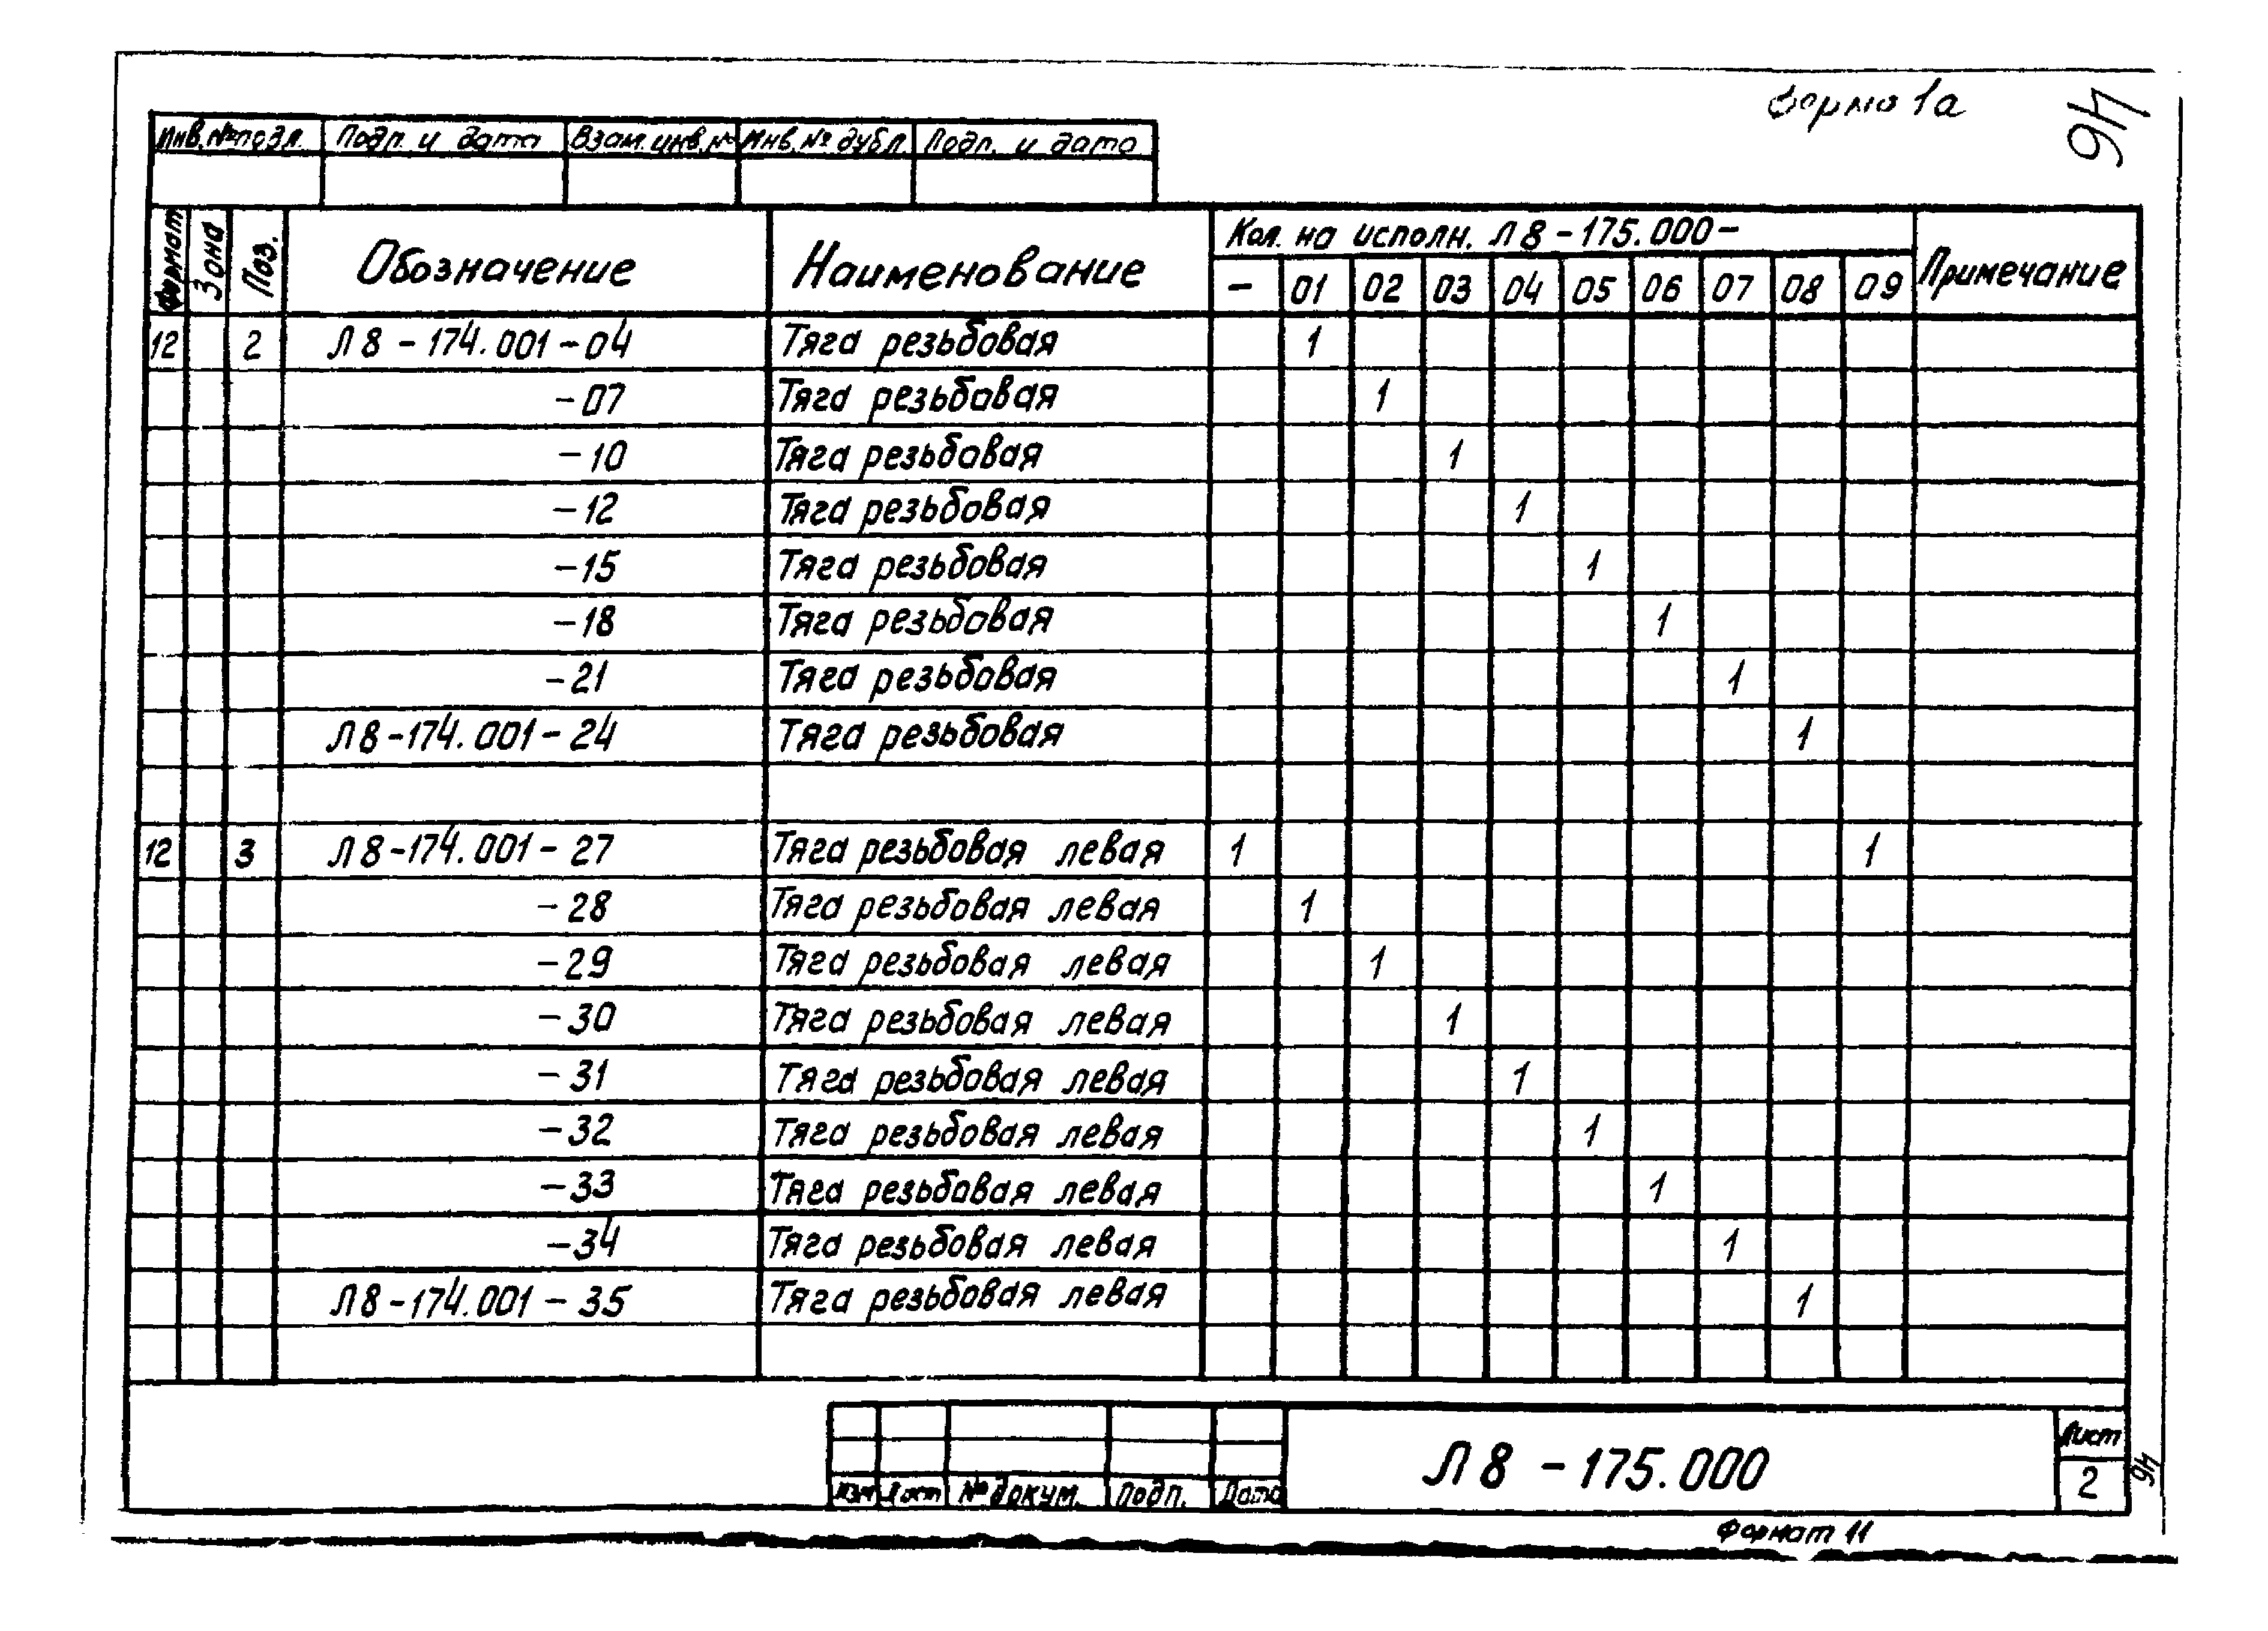 Форма 1а
46
Инв.№подл. Подп. и дата Взам.инв.№ Инв.№ дубл. Подп. и дата
Формат Зона Поз. Обозначение Наименование Кол. на исполн. Л8-175.000- Примечание
- 01 02 03 04 05 06 07 08 09
12 2 Л8-174.001-04 Тяга резьбовая 1
-07 Тяга резьбовая 1
-10 Тяга резьбовая 1
-12 Тяга резьбовая 1
-15 Тяга резьбовая 1
-18 Тяга резьбовая 1
-21 Тяга резьбовая 1
Л8-174.001-24 Тяга резьбовая 1
12 3 Л8-174.001-27 Тяга резьбовая левая 1 1
-28 Тяга резьбовая левая 1
-29 Тяга резьбовая левая 1
-30 Тяга резьбовая левая 1
-31 Тяга резьбовая левая 1
-32 Тяга резьбовая левая 1
-33 Тяга резьбовая левая 1
-34 Тяга резьбовая левая 1
Л8-174.001-35 Тяга резьбовая левая 1
Изм Лист №докум. Подп. Дата
Л8-175.000
Лист
2
46
Формат 11